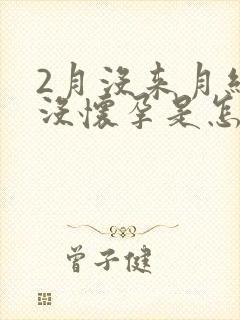 2月没来月
没怀孕是怎
曾子健